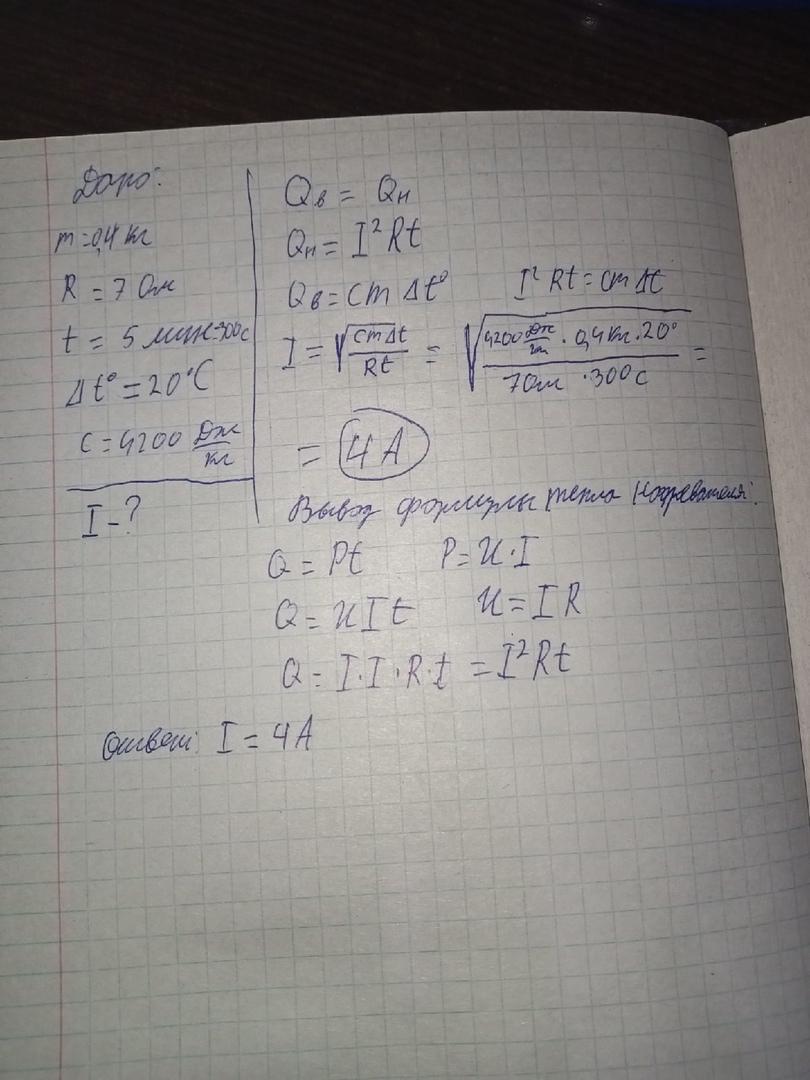 Дано:
m = 0,4 кг
R = 7 Ом
t = 5 мин = 300с
Δt° = 20°C
c = 4200 Дж/кг
I - ?
Qв = Qн
Qн = I²Rt
Qв = cmΔt° I²Rt = cmΔt
I = √(cmΔt/Rt) = √(4200 Дж/кг · 0,4 кг · 20°/7 Ом · 300с) =
= 4A
Вывод формулы тепла нагревателя:
Q = Pt P = U·I
Q = UIt U = IR
Q = I·I·R·t = I²Rt
Ответ: I = 4A